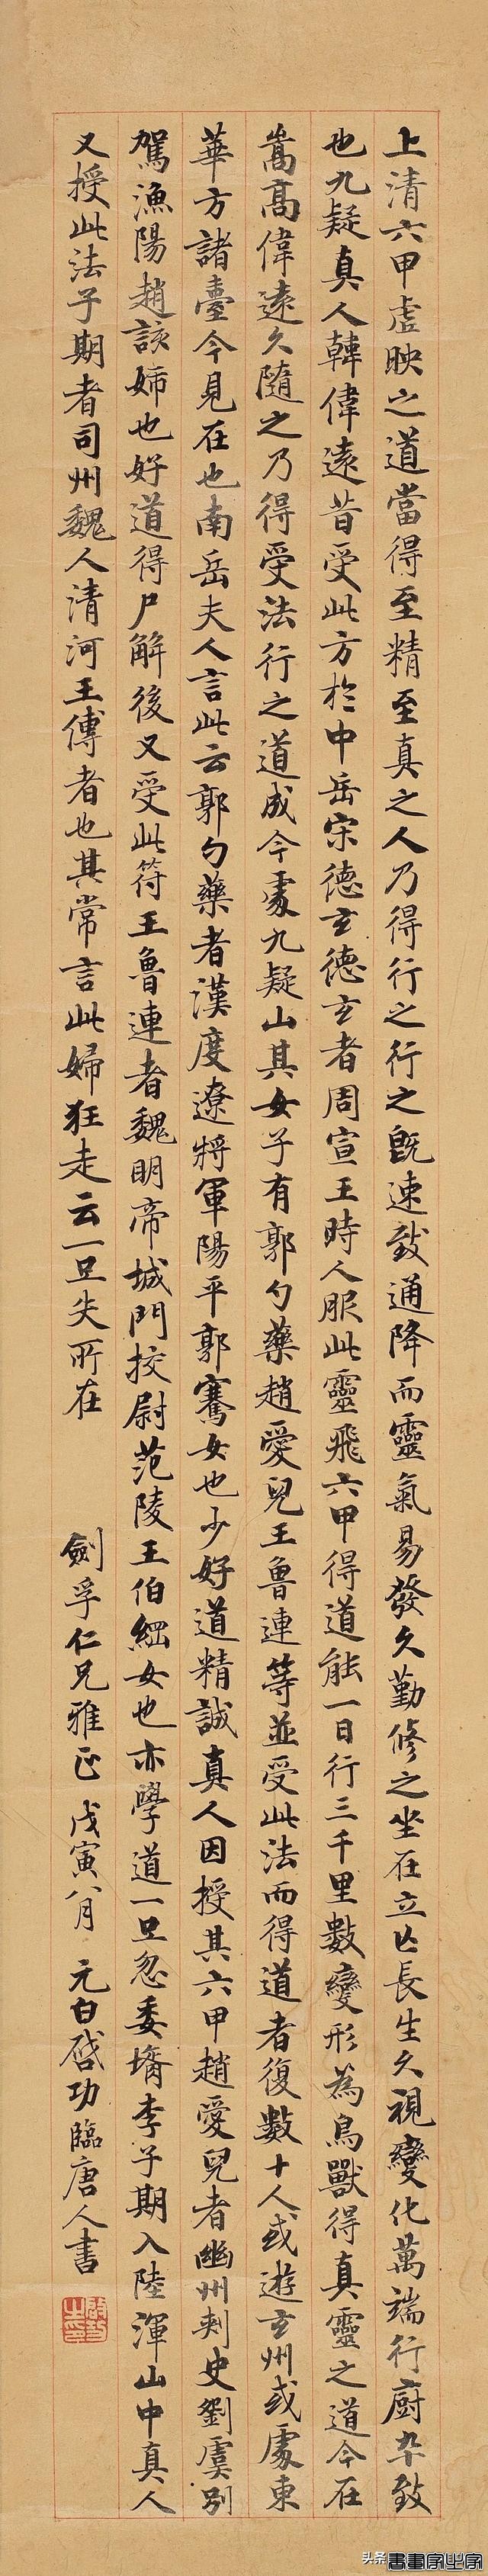 上清六甲虛映之道當得至精至真之人乃得行之行之既速致通降而靈氣易發久勤修之坐在立亡長生久視變化萬端行廚卒致
也九疑真人韓偉遠昔受此方於中岳宋德玄德玄者周宣王時人服此靈飛六甲得道能一日行三千里數變形為鳥獸得真靈之道今在
嵩高偉遠久隨之乃得受法行之道成今處九疑山其女子有郭勺藥趙愛兒王魯連等並受此法而得道者復數十人或遊玄州或處東
華方諸臺今見在也南岳夫人言此云郭勺藥者漢度遼將軍陽平郭騫女也少好道精誠真人因授其六甲趙愛兒者幽州刾史劉虞別
駕漁陽趙該姊也好道得尸解後又受此符王魯連者魏明帝城門挍尉范陵王伯綱女也亦學道一旦忽委壻李子期入陸渾山中真人
又授此法子期者司州魏人清河王傅者也其常言此婦狂走云一旦失所在 劍孚仁兄雅正 戊寅八月 元白啓功臨唐人書
头条
書畫家之家